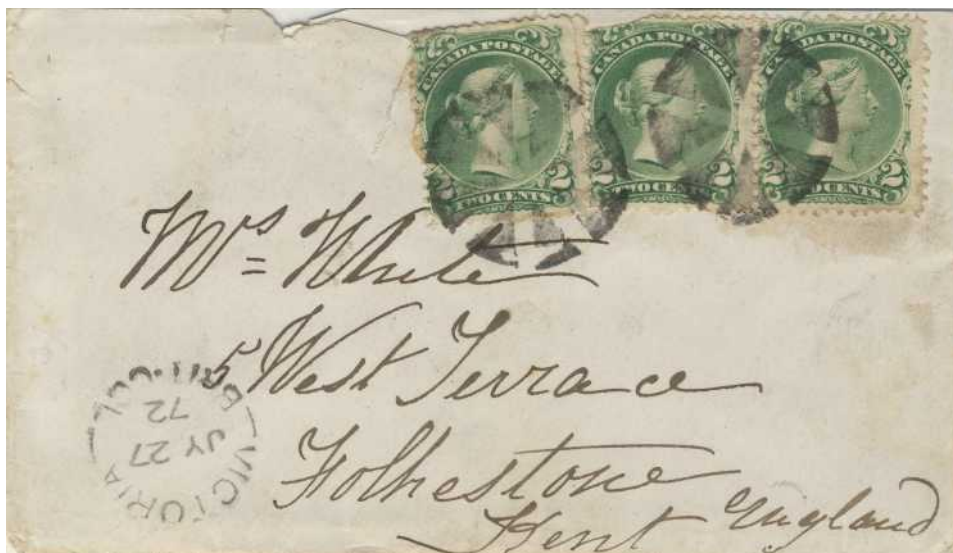 CANADA POSTAGE
2 TWO CENTS 2
CANADA POSTAGE
2 TWO CENTS 2
CANADA POSTAGE
2 TWO CENTS 2
Mrs White
5 West Terrace
Folkestone
Kent England
VICTORIA
JY 27
72
BRIT. COL.